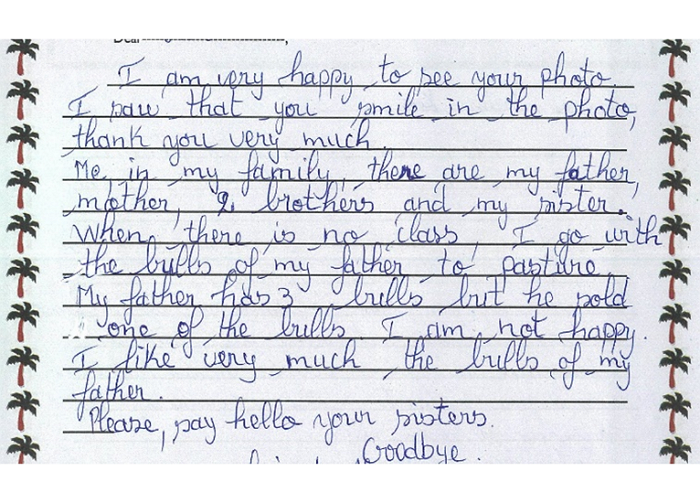 Dear
I am very happy to see your photo.
I saw that you smile in the photo,
thank you very much.
Me in my family, there are my father,
mother, 2 brothers and my sister.
When there is no class, I go with
the bulls of my father to pasture.
My father has 3 bulls but he sold
one of the bulls. I am not happy.
I like very much the bulls of my
father.
Please, say hello your sisters.
Goodbye.